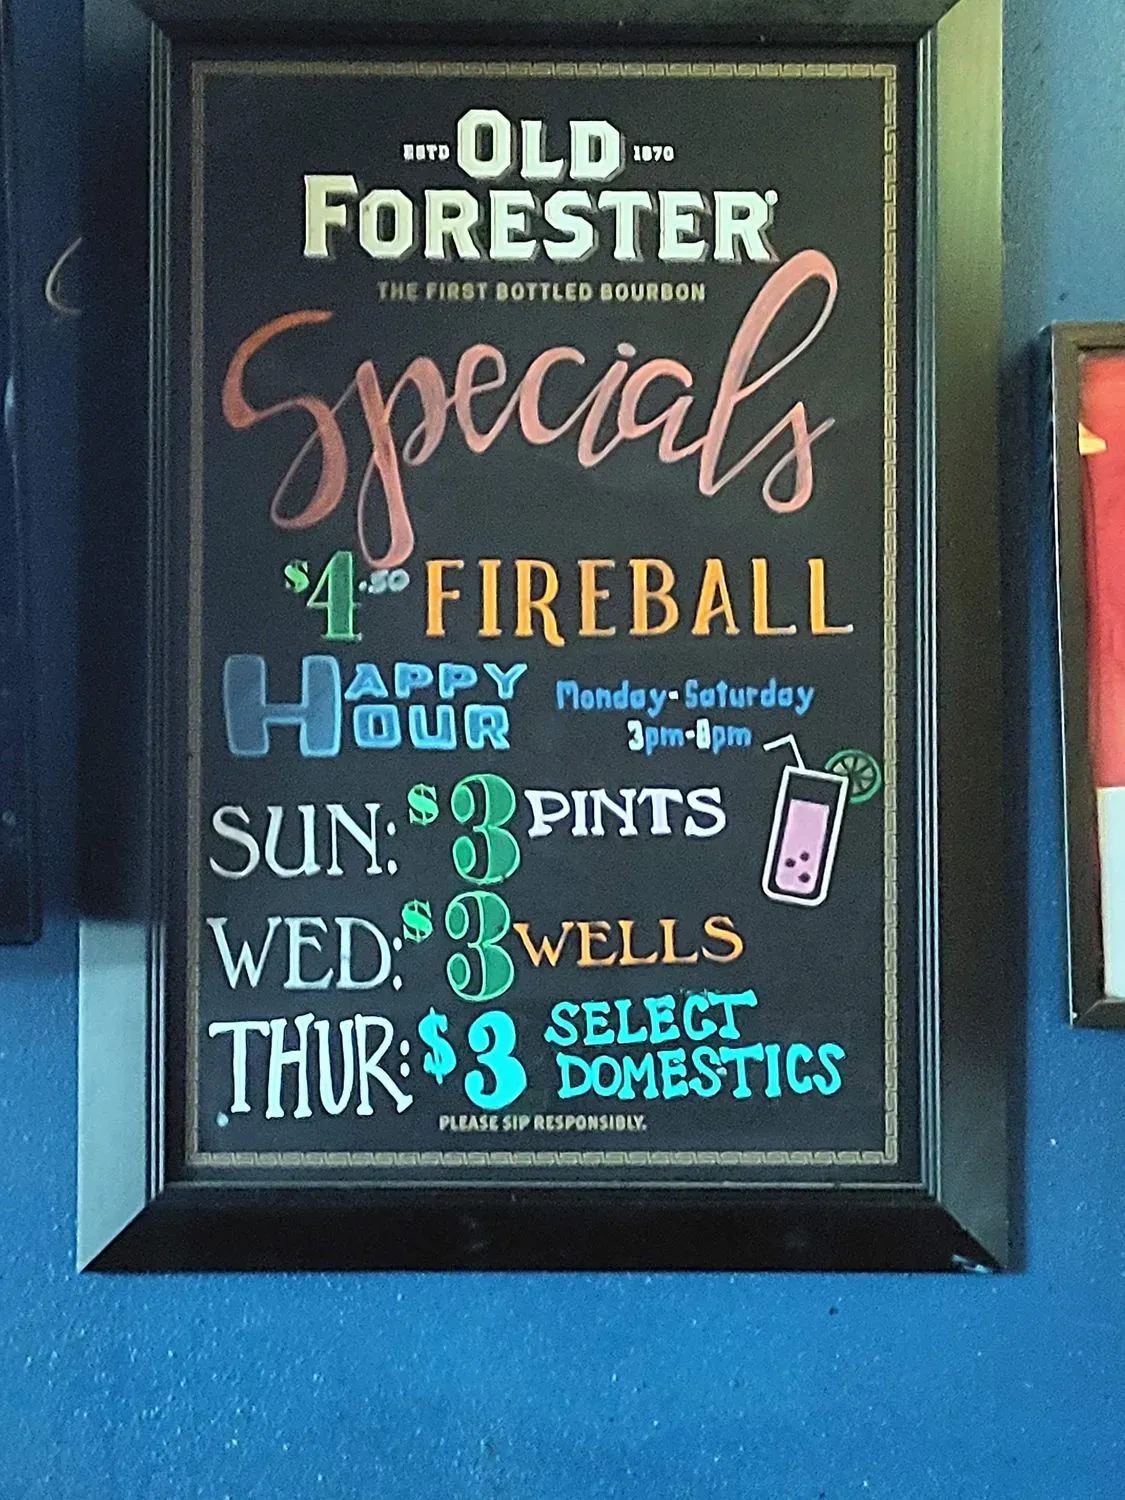 ESTD OLD 1870
FORESTER
THE FIRST BOTTLED BOURBON
Specials
$4.50 FIREBALL
HAPPY HOUR
Monday-Saturday
3pm-8pm
SUN: $3 PINTS
WED: $3 WELLS
THUR: $3 SELECT DOMESTICS
PLEASE SIP RESPONSIBLY.